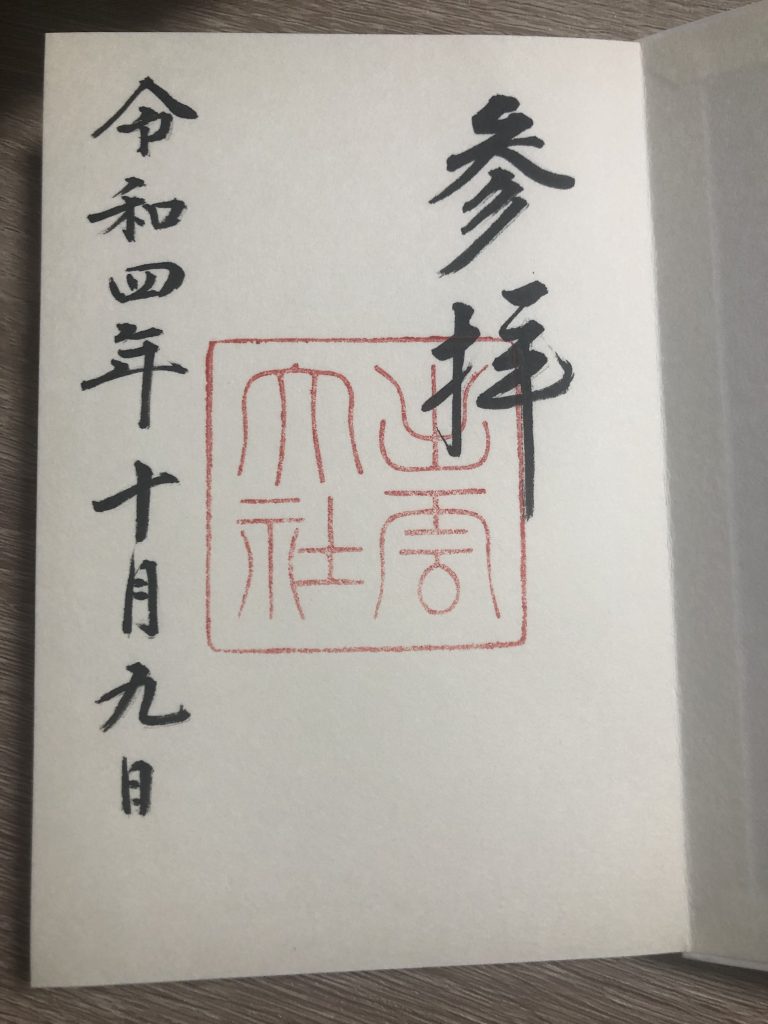 参拝
出雲
大社
令和四年十月九日